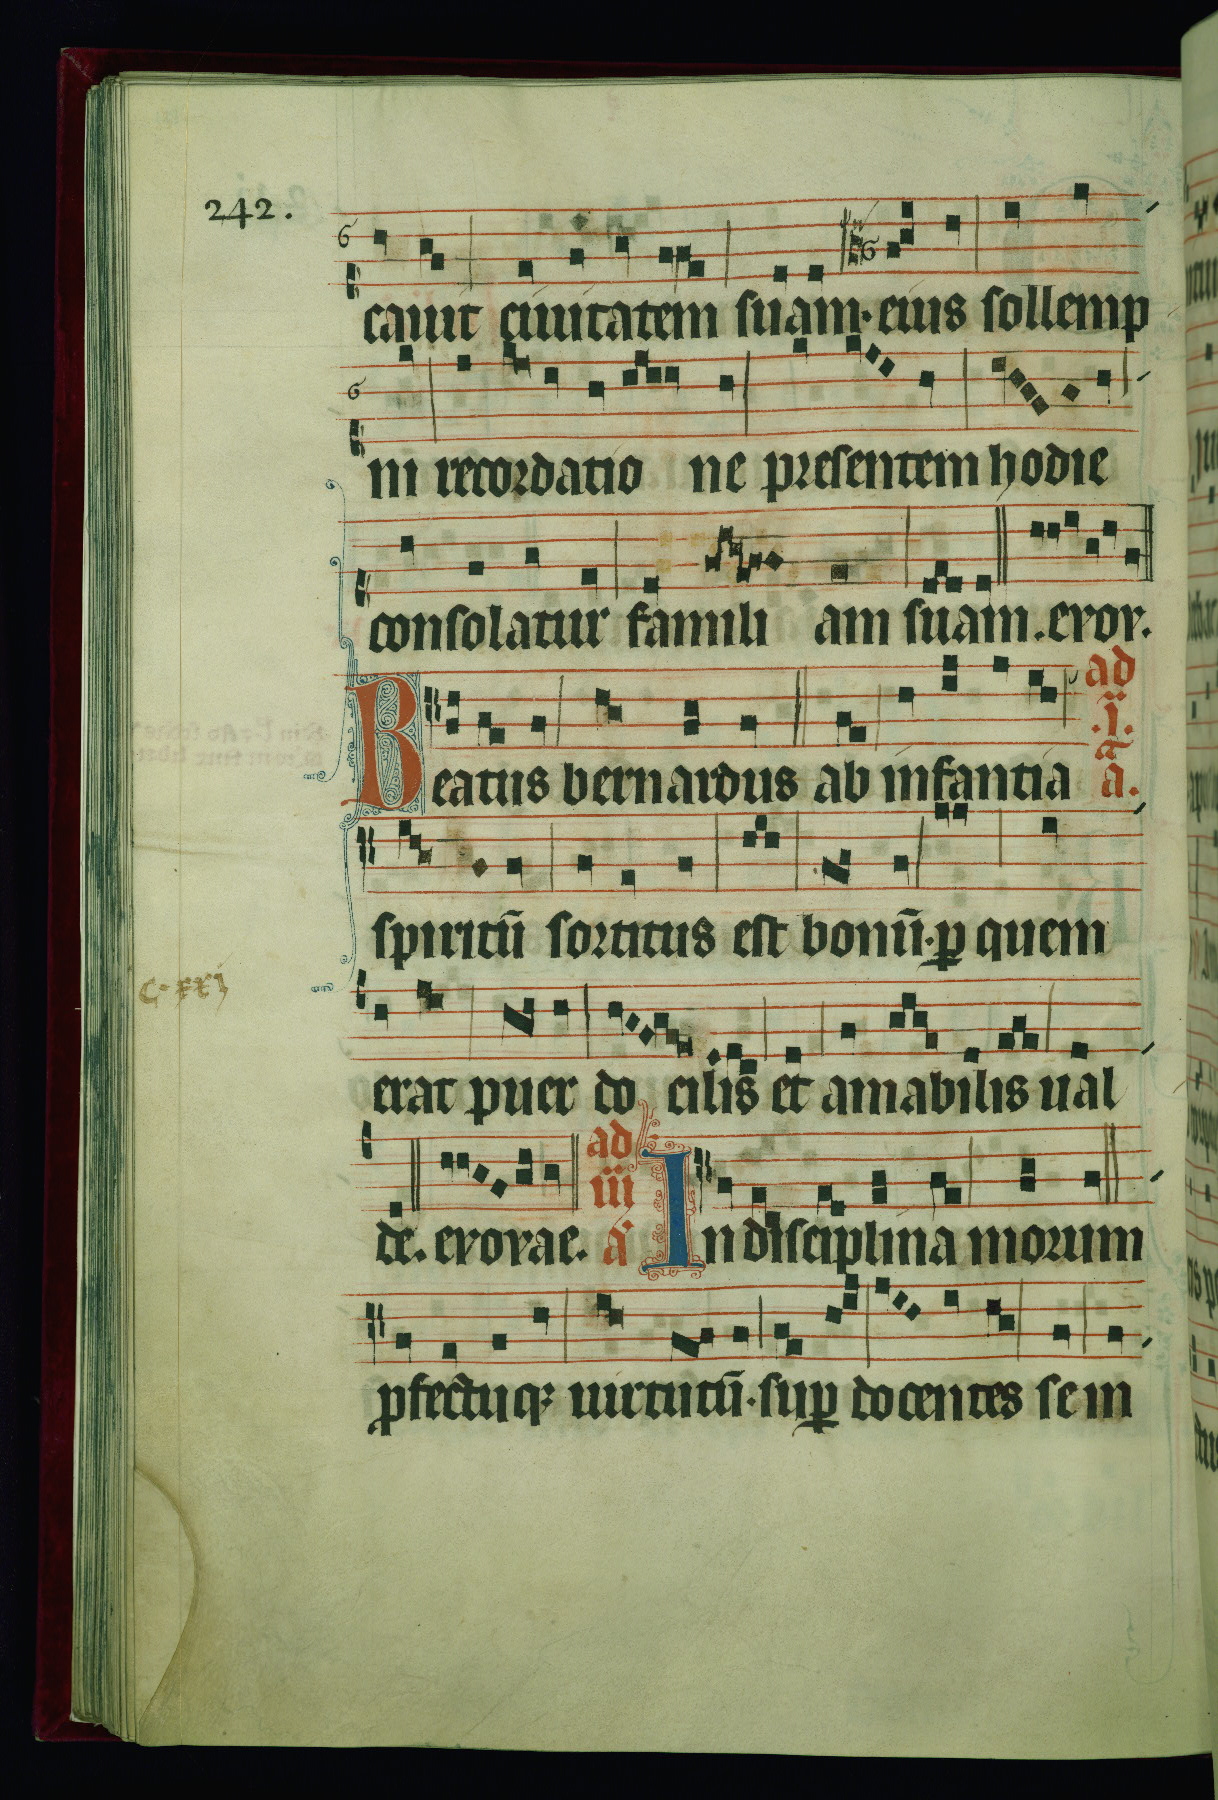 242.
cauit ciuitatem suam. eius sollemp
ni recordatio ne presentem hodie
consolatur famili am suam. evov.
Beatus bernardus ab infantia
ad .i. a.
spiritū sortitus est bonū. ꝑ quem
C. xxj
erat puer do cilis et amabilis ual
de. evovae. ad iii a In disciplina morum
ꝓfectuqꝫ uirtutū. suꝑ docentes se in